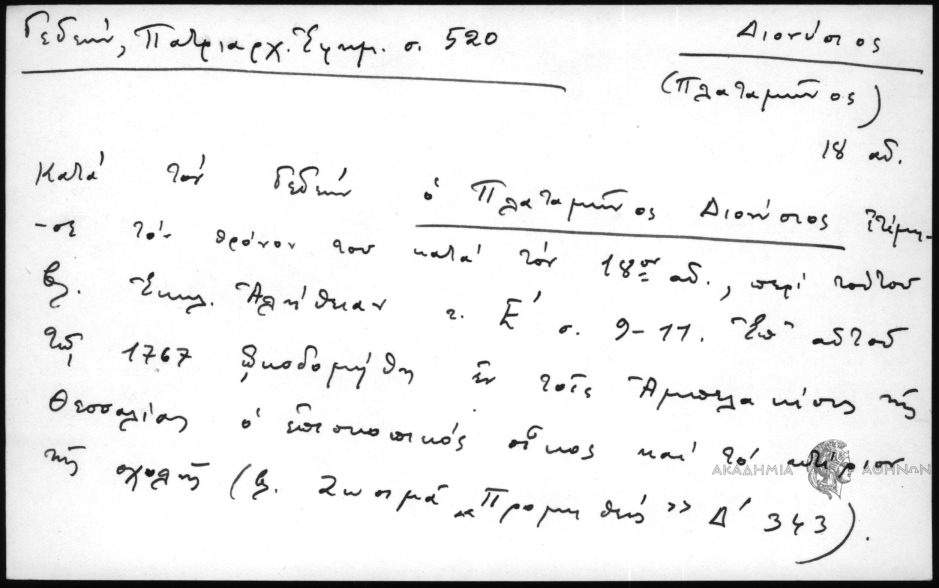 Γεδεών, Πατριαρχ. Ἐφημ. σ. 520
Διονύσιος
(Πλαταμῶνος)
18 αἰ.
Κατά τόν Γεδεών ὁ Πλαταμῶνος Διονύσιος ἐτίμη-
-σε τόν θρόνον του κατά τόν 18ον αἰ., περί τούτου
βλ. Ἐκκλ. Ἀλήθειαν τ. Ε΄ σ. 9-11. Ἐπ' αὐτοῦ
τῷ 1767 ᾠκοδομήθη ἐν τοῖς Ἀμπελακίοις τῆς
Θεσσαλίας ὁ ἐπισκοπικός οἶκος καί τό κτίριον
τῆς σχολῆς (βλ. Ζωσιμᾶ «Προμηθεύς» Δ΄ 343).
ΑΚΑΔΗΜΙΑ ΑΘΗΝΩΝ